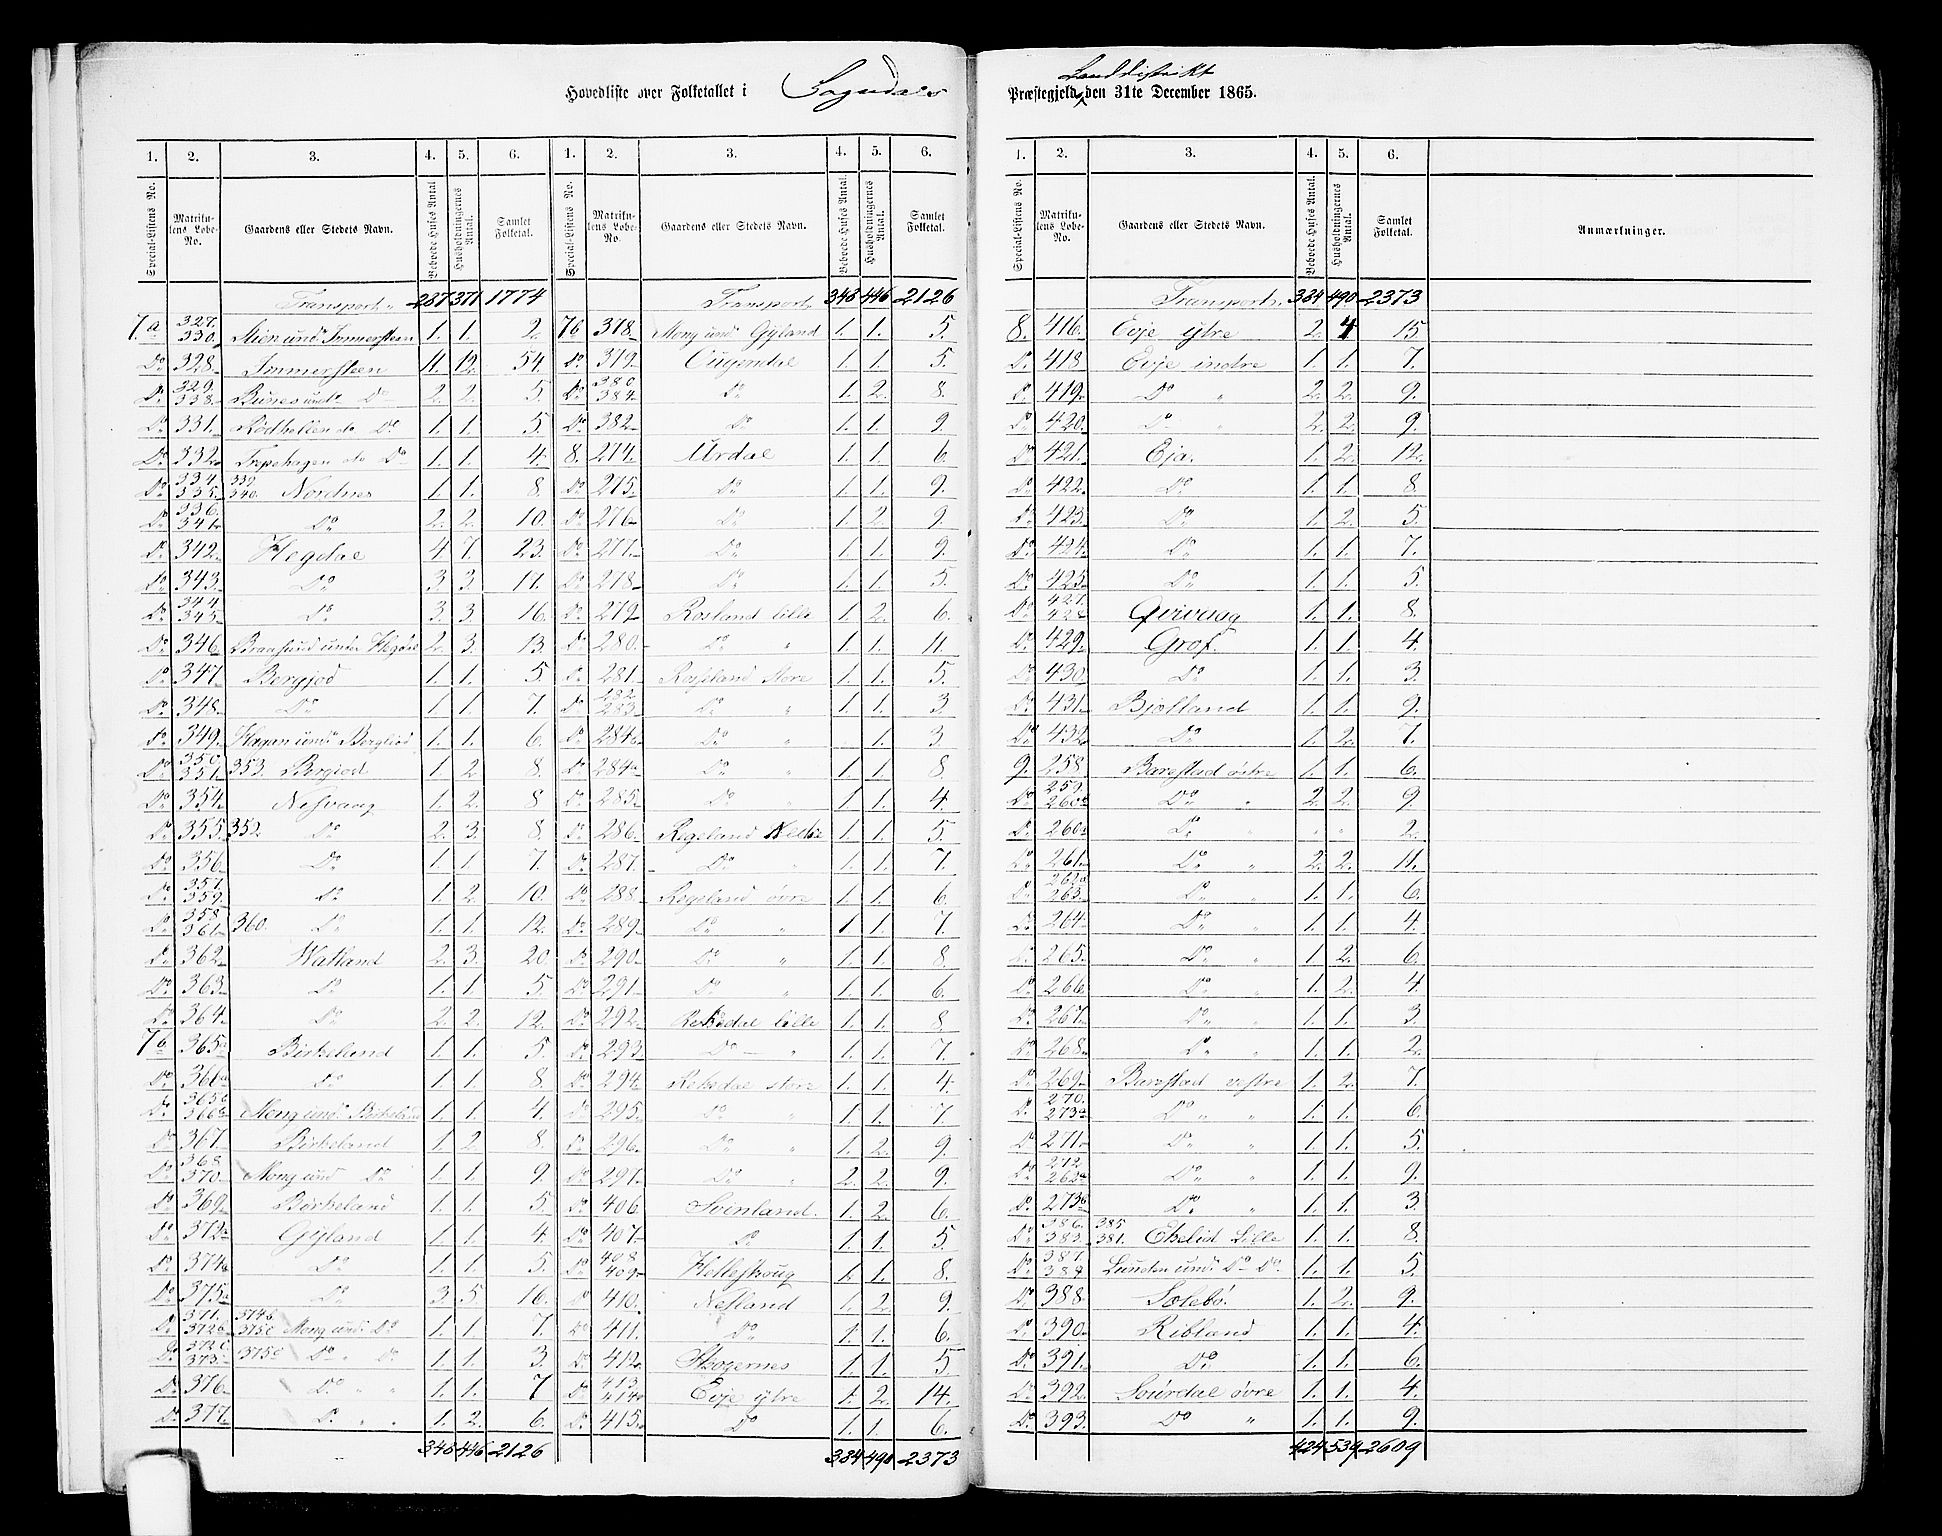 Hovedliste over Folketallet i Sogndals
Landdistrikt
Præstegjeld den 31te December 1865.
1. 2. 3. 4. 5. 6. 1. 2. 3. 4. 5. 6.
Special-Listens No. Matrikulens Løbe-No. Gaardens eller Stedets Navn. Beboede Huses Antal Husholdningernes Antal. Samlet Folketal. Special-Listens No. Matrikulens Løbe-No. Gaardens eller Stedets Navn. Beboede Huses Antal. Husholdningernes Antal. Samlet Folketal.
Transport „ 287 371 1774 Transport „ 348 446 2126
7.a 327. 330. und. Immersteen 1. 1. 2. 7b 378. Mong und. Gyland 1. 1. 5.
Do 328. Immersteen 11. 12. 54. Do 379. 1. 1. 5.
Do 329. 338. Bunes und. Do 2. 2. 5. Do 380. 384. Do 1. 2. 8.
Do 331. Rødhellen do Do 1. 1. 5. Do 382. Do 1. 1. 9.
Do 332. do Do 1. 1. 4. 8. 274. Urdal 1. 1. 6.
Do 334. 335. 339. 340. Nordnes 1. 1. 8. Do 275. Do 1. 1. 9.
Do 336. 341. Do 2. 2. 10. Do 276. Do 1. 2. 9.
Do 342. Hegdal 4. 7. 23. Do 277. Do 1. 1. 9.
Do 343. Do 3. 3. 17. Do 278. Do 1. 1. 5.
Do 344. 345. Do 3. 3. 16. Do 279. Rosland lille 1. 2. 6.
Do 346. under Hegdal 2. 3. 13. Do 280. Do „ 1. 1. 11.
Do 347. Bergjod 1. 1. 5. Do 281. Rosland Store 1. 1. 5.
Do 348. Do 1. 1. 7. Do 282. 283. Do „ 1. 1. 3.
Do 349. Hagan und. Bergjod 1. 1. 6. Do 284. Do „ . 1. 3.
Do 350. 351. 353. Bergjod 1. 2. 8. Do 284a Do „ 1. 1. 8.
Do 354. Nesvaag 1. 2. 8. Do 285. Do „ 1. 1. 4.
Do 355. 352. Do 2. 3. 8. Do 286. Regeland Nedre 1. 1. 5.
Do 356. Do 1. 1. 7. Do 287. Do „ 1. 1. 7.
Do 357. 359. Do 1. 2. 10. Do 288. Regeland øvre 1. 1. 6.
Do 358. 361. 360. Do 1. 1. 12. Do 289. Do „ 1. 1. 7.
Do 362. Watland 2. 3. 20. Do 290. Do „ 1. 1. 8.
Do 363. Do 1. 1. 5. Do 291. Do „ 1. 1. 6.
Do 364. Do 2. 2. 12. Do 292. Rekedal lille 1. 1. 8.
7b 365a Birkeland 1. 1. 5. Do 293. Do „ 1. 1. 7.
Do 366a Do 1. 1. 8. Do 294. Rekedal store 1. 1. 4.
Do 365c 366b Mong und. Birkeland 1. 1. 4. Do 295. Do „ 1. 1. 7.
Do 367. Birkeland 1. 2. 8. Do 296. Do „ 1. 2. 9.
Do 368 370. Mong und Do 1. 1. 9. Do 297. Do „ 2. 2. 9.
Do 369. Birkeland 1. 1. 5. Do 406. Svinland. 1. 2. 6.
Do 372a Gyland 1. 1. 4. Do 407. Do 1. 1. 5.
Do 374a Do 1. 1. 5. Do 408 409. Helleskoug 1. 1. 8.
Do 375a Do 3. 5. 16. Do 410. Nesland 1. 2. 9.
Do 371. 372b 374b 375c Mong und. Do 1. 1. 7. Do 411. Do 1. 1. 6.
Do 372c 373. 375c Do „ Do 1. 1. 3. Do 412. Skogernes 1. 1. 5
Do 376. Do „ „ 1. 1. 7 Do 413. 414. Evje ytre 1. 2. 14.
Do 377. Do „ „ 1. 2. 6. Do 415. Do 1. 1. 6.
348 446 2126 384 490 2373
1. 2. 3. 4. 5. 6.
Special-Listens No. Matrikulens Løbe-No. Gaardens eller Stedets Navn. Beboede Huses Antal. Husholdningernes Antal. Samlet Folketal. Anmærkninger.
Transport „ 384 490 2373
8. 416. Evje ytre 2. 4 15.
Do 418 Evje indre 1. 1. 7.
Do 419. Do „ 2. 2. 9.
Do 420. Do „ 2. 2. 9.
Do 421. Eja. 1. 2. 12.
Do 422. Do 1. 1. 8.
Do 423. Do 1. 2. 5.
Do 424. Do 1. 1. 7.
Do 425. Do 1. 1. 5.
Do 427. 428. Qvivaag 1. 1. 8.
Do 429. Grof. 1. 1. 4.
Do 430. Do 1. 1. 3.
Do 431. Bjelland 1. 1. 9.
Do 432. Do 1. 2. 7.
9. 258 Barstad østre 1. 1. 6.
Do 259. 260b Do „ 2. 2. 9.
Do 260a Do „ „ „ 2.
Do 261. Do „ 2. 2. 11.
Do 262a 263. Do „ 1. 1. 6.
Do 264. Do „ 1. 1. 4.
Do 265. Do „ 1. 2. 6.
Do 266. Do „ 1. 2. 4.
Do 267. Do „ 1. 1. 3.
Do 268. Do „ 1. 1. 2.
Do 269. Barstad vestre 1. 2. 7.
Do 270. 273a Do „ „ 1. 1. 6.
Do 271. Do „ 1. 1. 5.
Do 272. 262a Do „ 1. 1. 9.
Do 273b Do „ 1. 1. 3.
Do 386. 383. 385 381. Ekelid Lille 1. 1. 8.
Do 387. 389. Lunden und. Do Do. 1. 1. 5.
Do 388. Solebø. 1. 2. 9.
Do 390. Ribland 1. 1. 4.
Do 391. Do 1. 1. 6.
Do 392. Sourdal øvre 1. 1. 4.
Do 393. Do „ 1. 1. 9.
424 539 2609